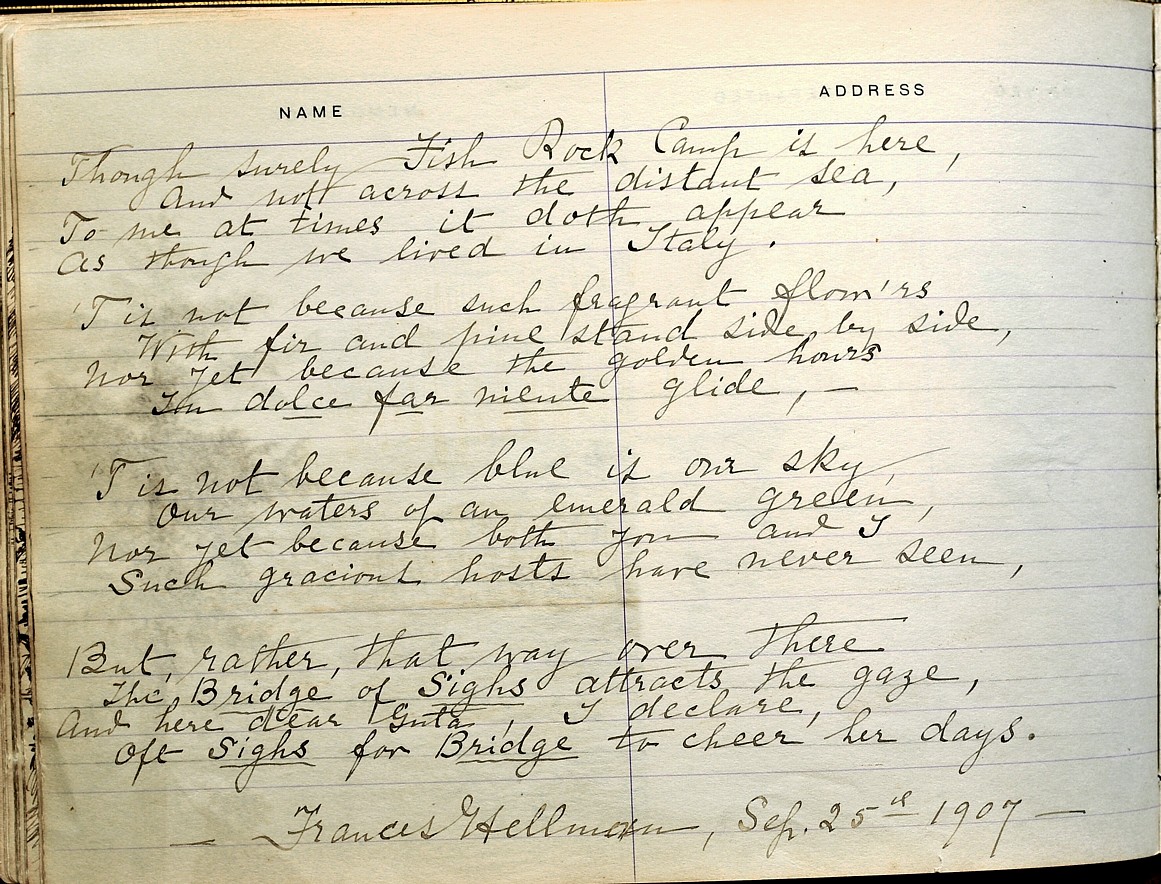 NAME ADDRESS
Though surely Fish Rock Camp is here,
And not across the distant sea,
To me at times it doth appear
As though we lived in Italy.
'Tis not because such fragrant flow'rs
With fir and pine stand side by side,
Nor yet because the golden hours
In dolce far niente glide, —
'Tis not because blue is our sky,
Our waters of an emerald green,
Nor yet because both you and I
Such gracious hosts have never seen,
But, rather, that way over there
The Bridge of Sighs attracts the gaze,
And here dear Guta, I declare,
Oft Sighs for Bridge to cheer her days.
— Frances Hellman, Sep. 25th 1907 —